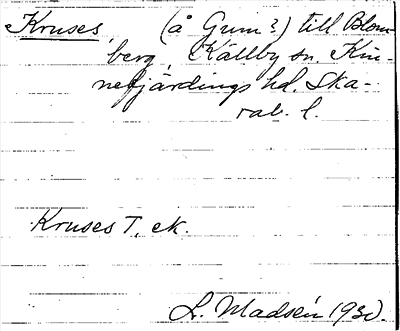 Kruses (å Grum?) till Blom-
berg, Källby sn. Kin-
nefjärdings hd. Ska-
rab. l.
Kruses T, ek.
L. Madsén 1930.